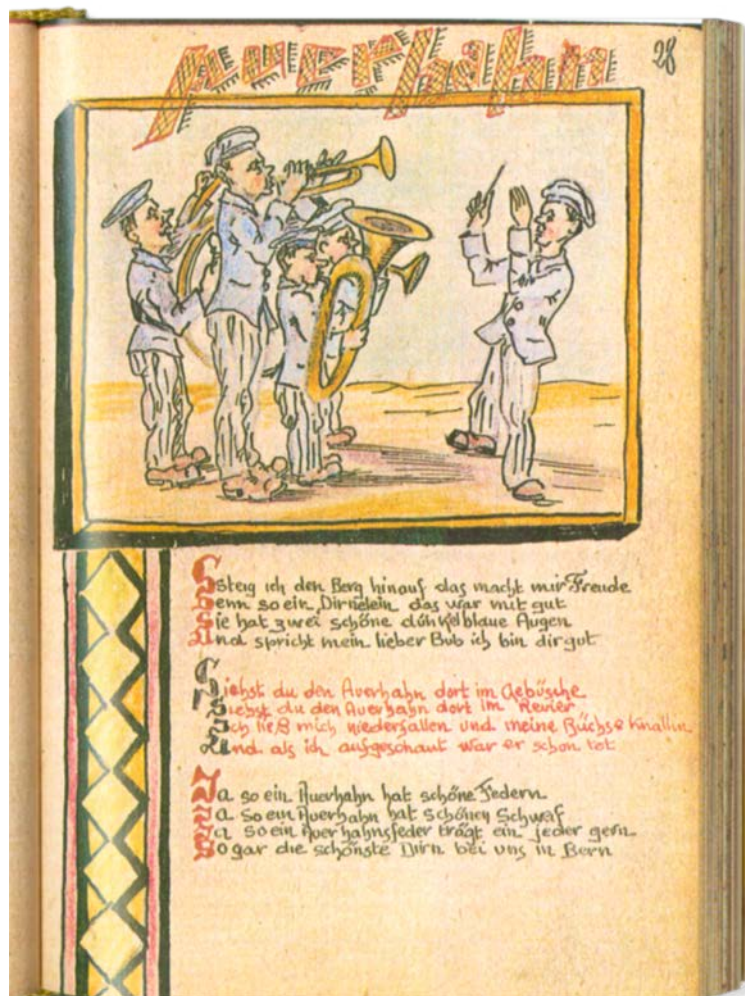 Auerhahn
28
Steig ich den Berg hinauf das macht mir Freude
Denn so ein Dirndelein das war mit gut
Sie hat zwei schöne dúnkelblaue Augen
Und spricht mein lieber Bub ich bin dir gut
Siehst du den Auerhahn dort im Gebüsche
Siehst du den Auerhahn dort im Revier
Ich ließ mich niederfallen und meine Büchse knallin
Und als ich aufgeschaut war er schon tot
Ja so ein Auerhahn hat schöne Federn
Ja so ein Auerhahn hat schönen Schweif
Ja so ein Auerhahnsfeder trägt ein jeder gern
Sogar die schönste Dirn bei uns in Bern